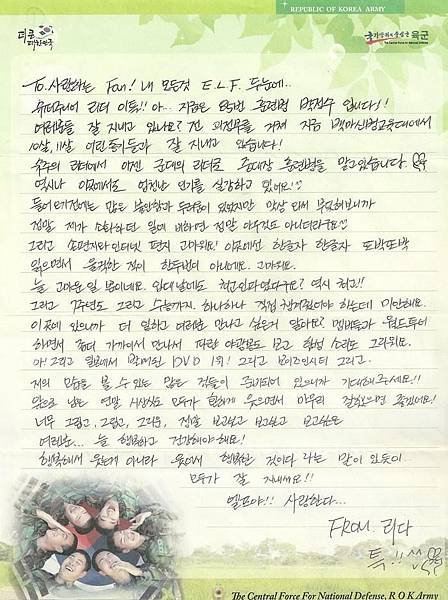 REPUBLIC OF KOREA ARMY
대한민국
육군
The Central Force for National Defense
To. 사랑하는 Fan! 내 모든것 E.L.F.
리더 이특!! 아... 지금은 85번 훈련병 박정수 입니다!!
여러분들 잘 지내고 있나요?
10살, 11살 어린 동기들과 잘 지내고 있습니다!
슈주의 리더에서 이젠 군대의 리더로 중대장 훈련병을 맡고있습니다
역시나 이곳에서도 엄청난 인기를 실감하고 있어요!!
들어오기전에는 많은 불안함과 두려움이 있었지만 막상 와서 부딪혀보니까
정말 제가 소화했던 일에 비하면 정말 아무것도 아니더라구요
그리고 손편지와 인터넷 편지 고마워요! 이곳에선 한글자 한글자 또박또박
읽으면서 울컥한 적이 한두번이 아니에요. 고마워요.
늘 고마운 일 뿐이네요. 역시 최고!!
그리고 7주년도 그리고 수능까지. 하나하나 직접 챙겨줬어야 하는데 미안해요.
이곳에 있으니까 더 일하고 여러분 만나고 싶은거 알아요? 멤버들과 월드투어
하면서 좀더 가까이서 만나서 파란 야광봉도 보고 함성 소리도 그리워요.
아! 그리고 일본에서 발매된 DVD 1위! 그리고 보이즈인시티 그리고..
저의 모습을 볼 수 있는 많은 것들이 준비되어 있으니까 기대해주세요!!
앞으로 남은 연말 시상식도 모두가 함께 웃으면서 마무리 잘했으면 좋겠어요!
너무 그립고, 그립고, 그리운, 정말 보고싶고 보고싶고 보고싶은
여러분... 늘 행복하고 건강해야해요!
행복해서 웃는게 아니라 웃어서 행복한 것이다 라는 말이 있듯이
모두가 잘 지내세요!!
엘프야!! 사랑한다...
FROM. 리다
특!!
The Central Force For National Defense, R O K Army